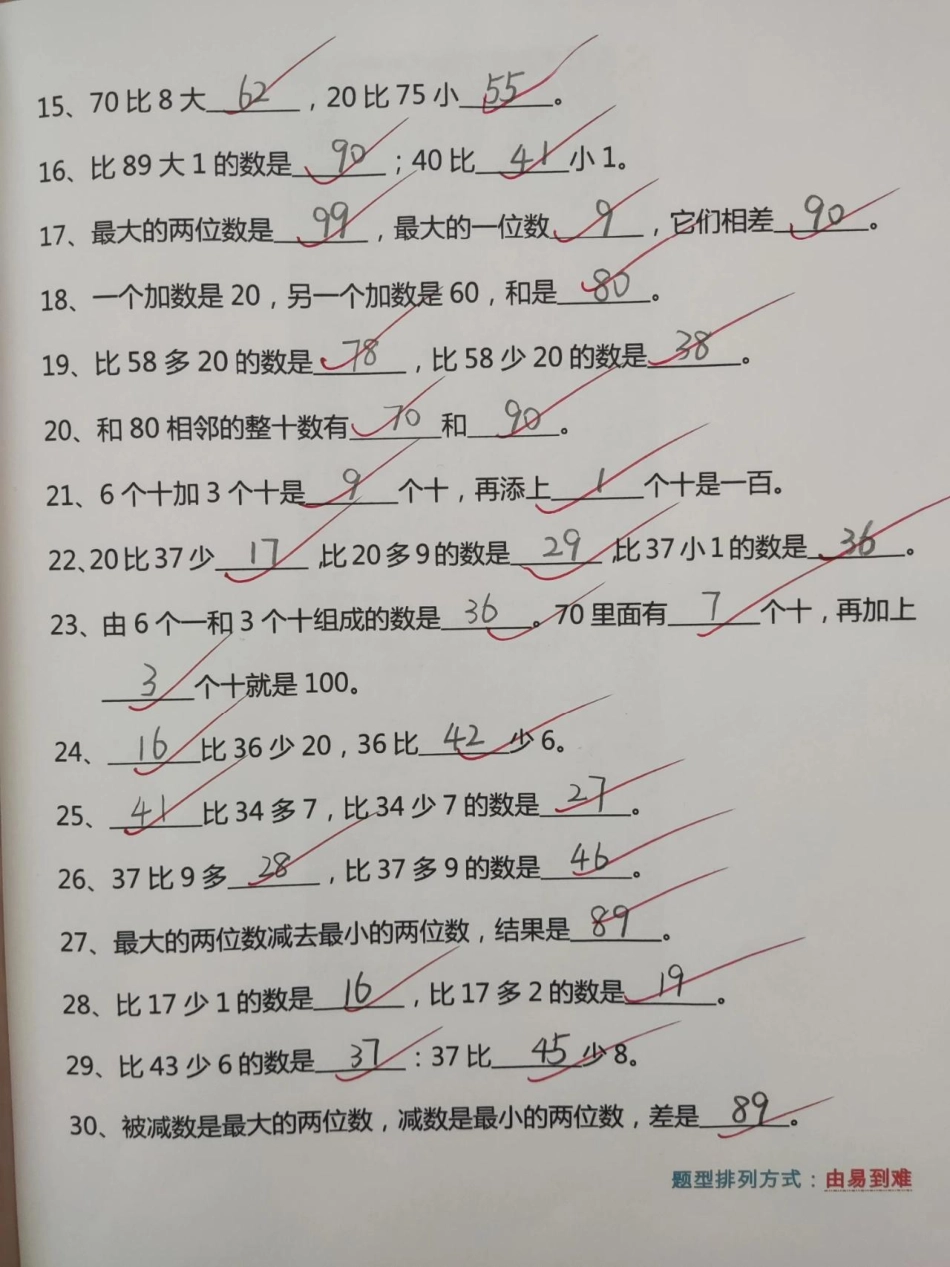 15、70比8大62，20比75小55。
16、比89大1的数是90；40比41小1。
17、最大的两位数是99，最大的一位数9，它们相差90。
18、一个加数是20，另一个加数是60，和是80。
19、比58多20的数是78，比58少20的数是38。
20、和80相邻的整十数有70和90。
21、6个十加3个十是9个十，再添上1个十是一百。
22、20比37少17，比20多9的数是29，比37小1的数是36。
23、由6个一和3个十组成的数是36。70里面有7个十，再加上
3个十就是100。
24、16比36少20，36比42少6。
25、41比34多7，比34少7的数是27。
26、37比9多28，比37多9的数是46。
27、最大的两位数减去最小的两位数，结果是89。
28、比17少1的数是16，比17多2的数是19。
29、比43少6的数是37：37比45少8。
30、被减数是最大的两位数，减数是最小的两位数，差是89。
题型排列方式：由易到难